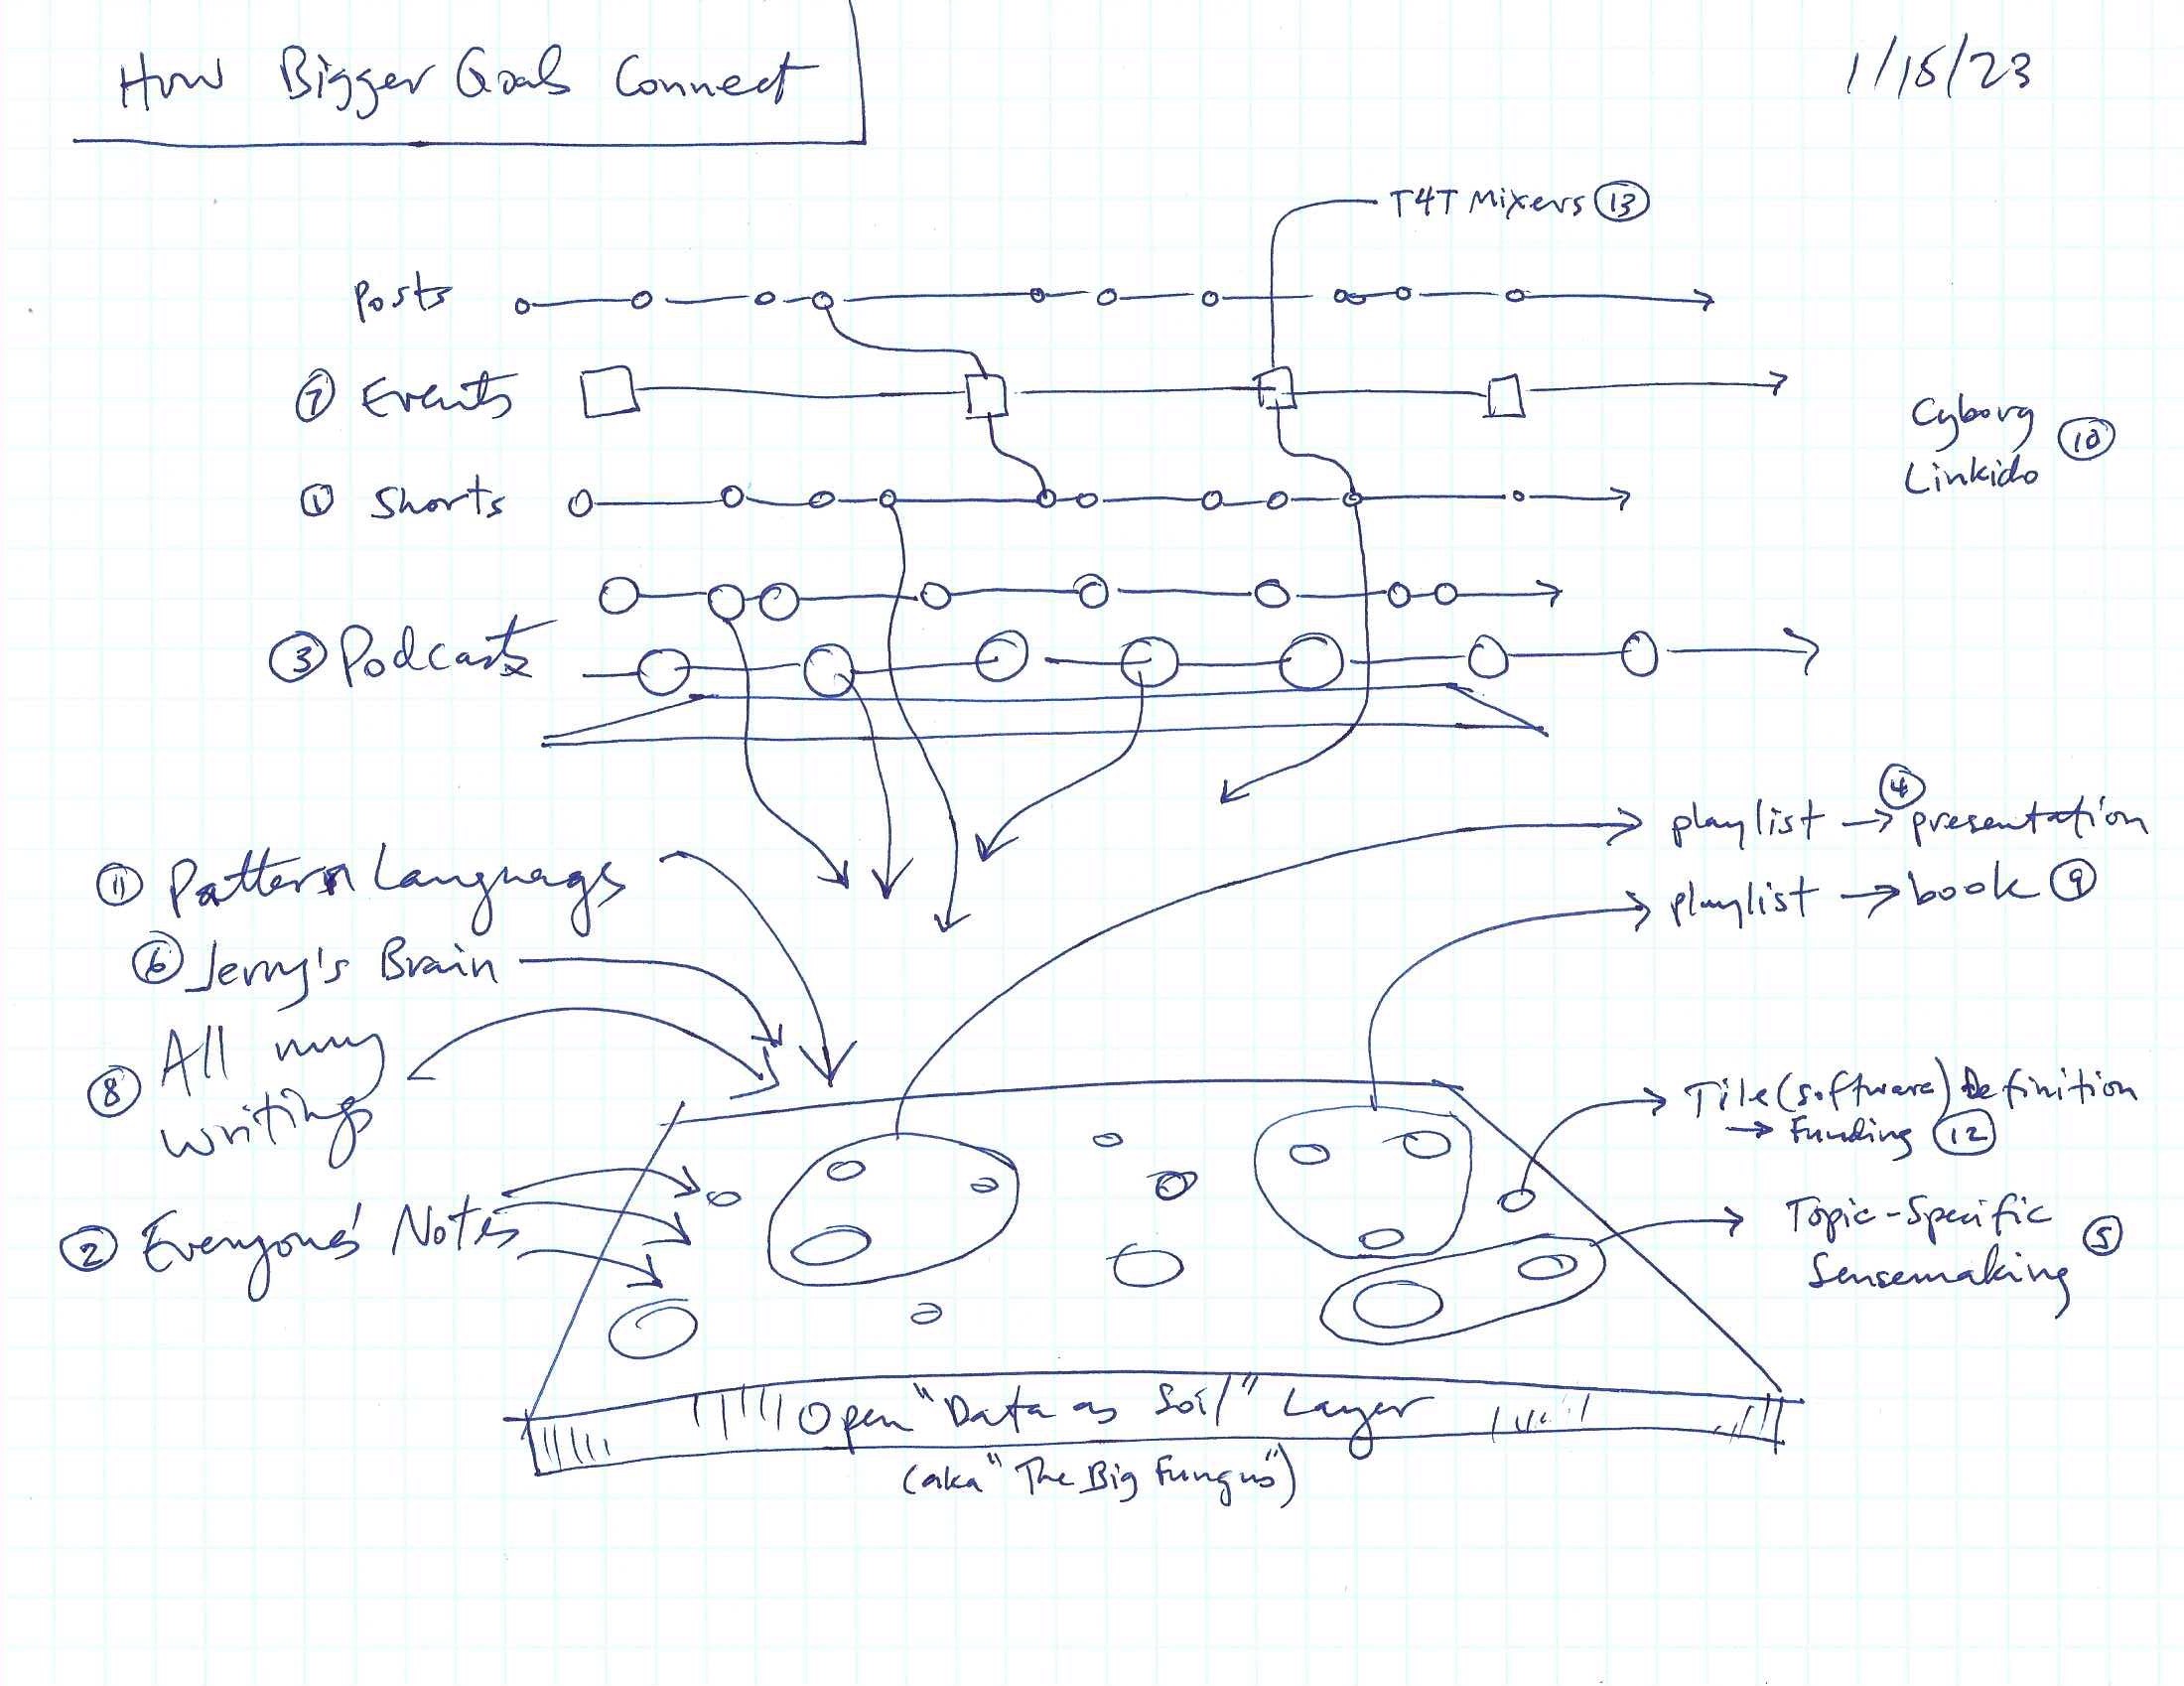 How Bigger Goals Connect
1/15/23
T4T Mixers 13
Posts
7 Events
Cyborg
Linkido 10
1 Shorts
3 Podcasts
4
playlist → presentation
playlist → book 9
11 Pattern Languages
6 Jerry's Brain
8 All my
writings
Tile (software) Definition
→ Funding 12
2 Everyone's Notes
Topic-Specific
Sensemaking 5
Open "Data as Soil" Layer
(aka "The Big Fungus")